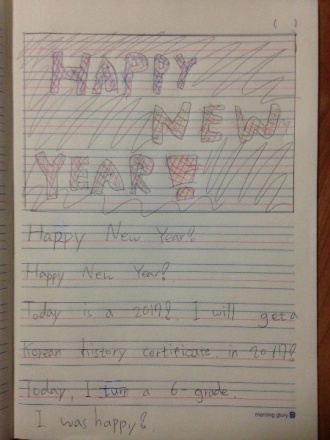 ( )
HAPPY
NEW
YEAR!
Happy New Year!
Happy New Year!
Today is a 2017! I will get a
Korean history certificate in 2017!
Today, I turn a 6-grade.
I was happy!
morning glory